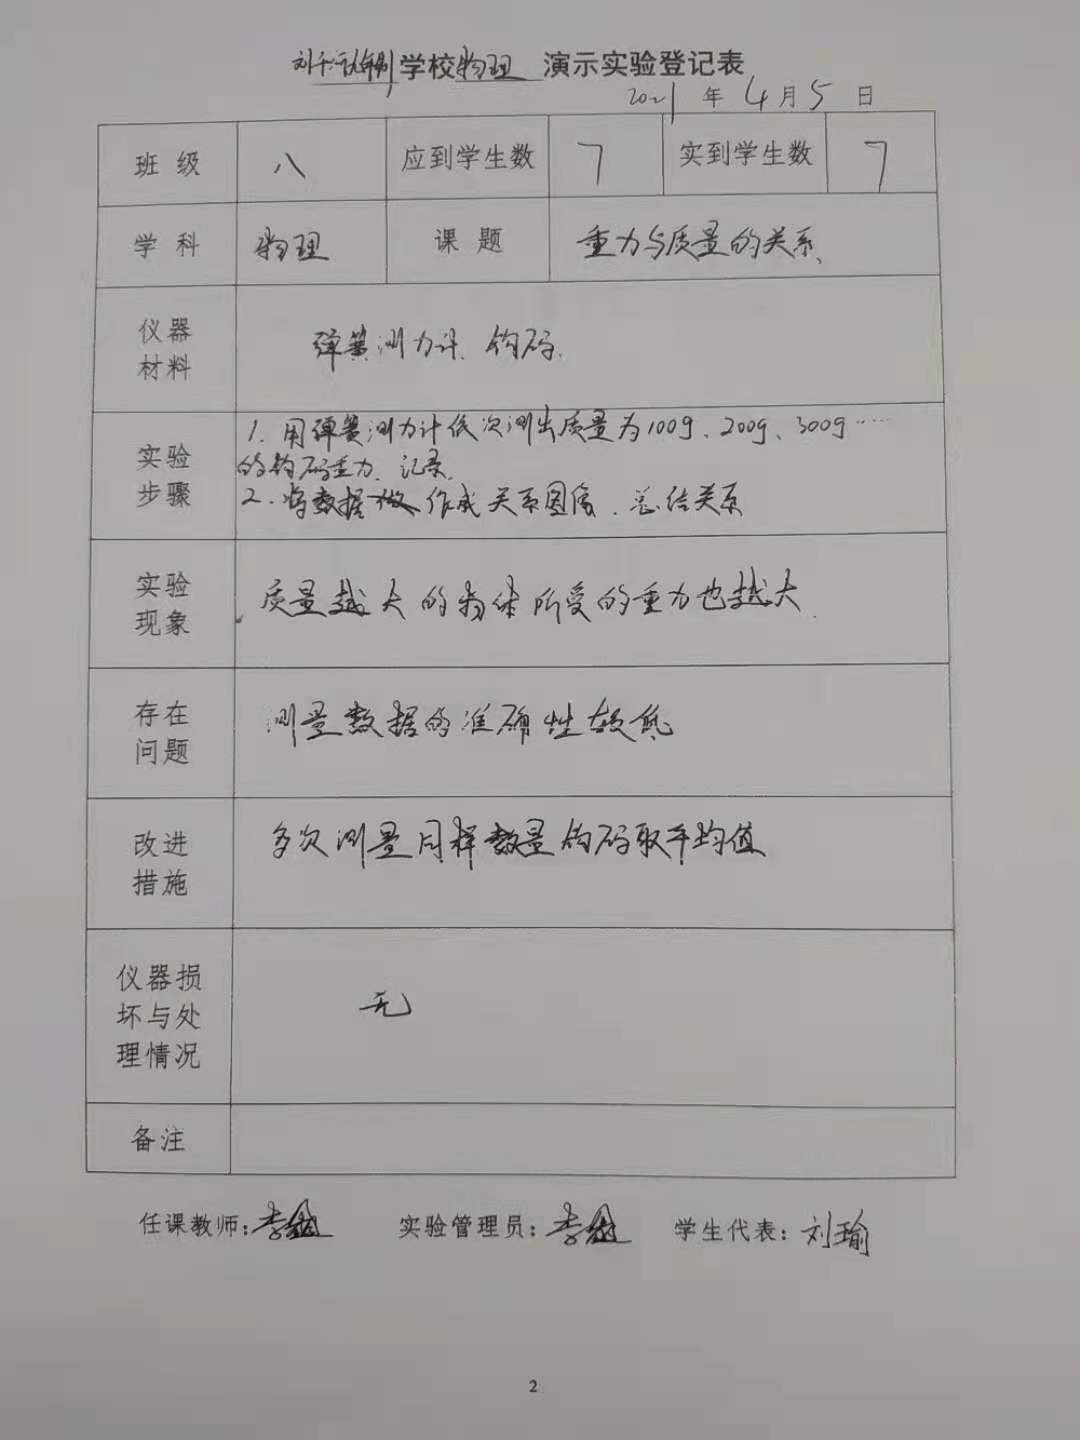 学校物理 演示实验登记表
2021 年 4 月 5 日
班 级 八 应到学生数 7 实到学生数 7
学 科 物理 课 题 重力与质量的关系
仪器
材料
弹簧测力计、钩码.
实验
步骤
1. 用弹簧测力计依次测出质量为100g、200g、300g……
的钩码重力、记录.
2. 将数据作成关系图像、总结关系
实验
现象
质量越大的物体所受的重力也越大.
存在
问题
测量数据的准确性较低
改进
措施
多次测量同样数量钩码取平均值
仪器损
坏与处
理情况
无
备注
任课教师: 实验管理员: 学生代表: 刘瑜
2